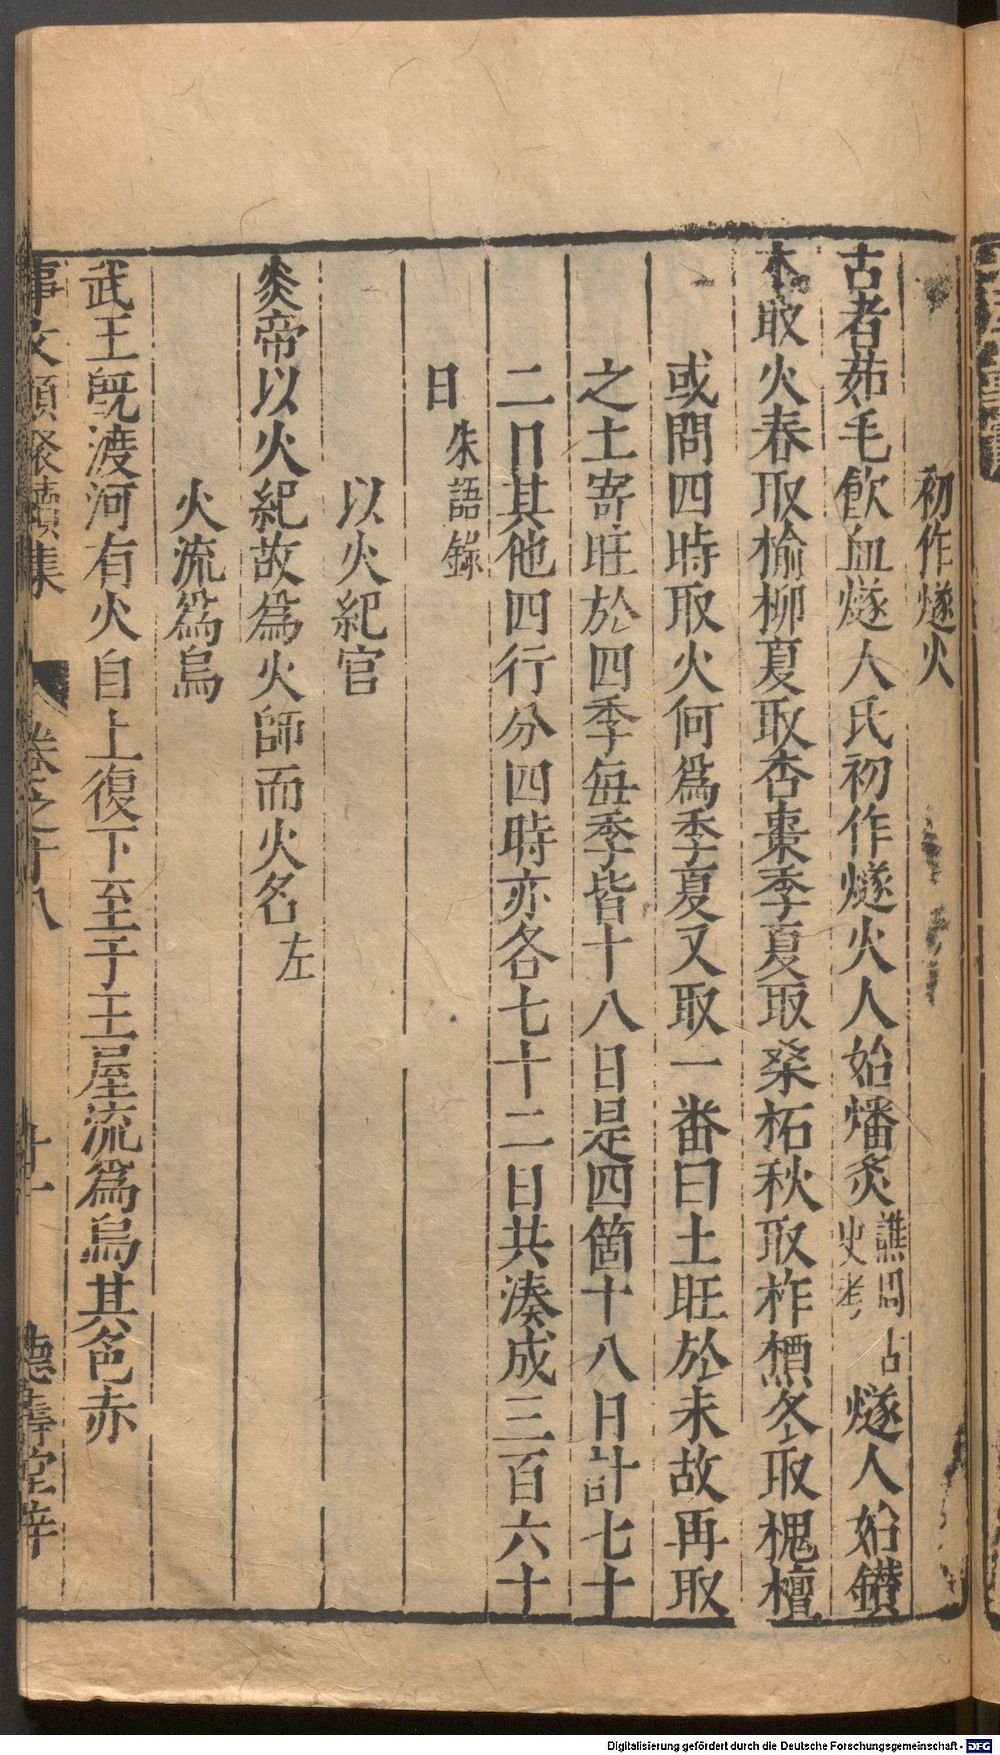 初作燧火
古者茹毛飲血燧人氏初作燧火人始燔炙譙周古史考燧人始鑚
木取火春取榆柳夏取杏棗季夏取桑柘秋取柞槱冬取槐檀
或問四時取火何爲季夏又取一番曰土旺於未故再取
之土寄旺於四季每季皆十八日是四箇十八日計七十
二日其他四行分四時亦各七十二日共湊成三百六十
日朱語錄
以火紀官
炎帝以火紀故爲火師而火名左
火流爲烏
武王旣渡河有火自上復下至于王屋流爲烏其色赤
事文類聚續集 卷之十八 十一 德壽堂梓
Digitalisierung gefördert durch die Deutsche Forschungsgemeinschaft - DFG